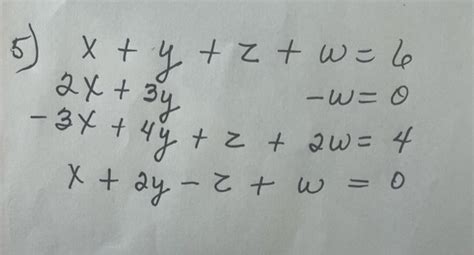 5) x + y + z + w = 6
2x + 3y -w = 0
-3x + 4y + z + 2w = 4
x + 2y - z + w = 0